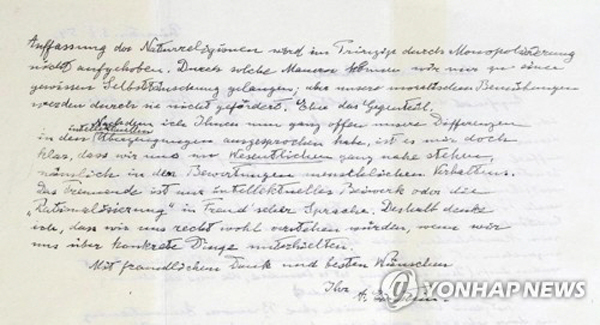 Auffassung der Naturreligionen wird im Prinzip durch Monopolisierung
nicht aufgehoben. Durch solche Mauern können wir nur zu einer
gewissen Selbsttäuschung gelangen; aber unsere moralischen Bemühungen
werden durch sie nicht gefördert. Eher das Gegenteil.
Nachdem ich Ihnen nun ganz offen unsere Differenzen
in den intellektuellen Überzeugungen ausgesprochen habe, ist es mir doch
klar, dass wir uns im Wesentlichen ganz nahe stehen,
nämlich in den Bewertungen menschlichen Verhaltens.
Das Trennende ist nur intellektuelles Beiwerk oder die
„Rationalisierung" in Freud'scher Sprache. Deshalb denke
ich, dass wir uns recht wohl verstehen würden, wenn wir
uns über konkrete Dinge unterhielten.
Mit freundlichem Dank und besten Wünschen
Ihr A. Einstein.
YONHAP NEWS